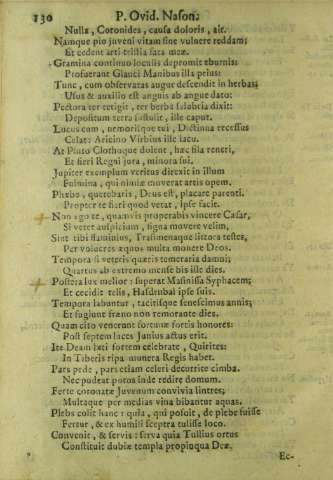 130 P. Ovid. Nason.
Nulla, Coronides, causa doloris, ait.
Namque pio juveni vitam sine vulnere reddam;
Et cedent arti tristia fata meæ.
Gramina continuo loculis depromit eburnis:
Profuerant Glauci Manibus illa prius:
Tunc, cum observatas augur descendit in herbas;
Usus & auxilio est anguis ab angue dato:
Pectora ter tetigit, ter verba salubria dixit:
Depositum terra sustulit, ille caput.
Lucus eum, nemorisque tui, Dictinna recessus
Celat: Aricino Virbius ille lacu.
At Pluto Clothoque dolent, hæc fila teneri,
Et fieri Regni jura, minora sui.
Jupiter exemplum veritus direxit in illum
Fulmina, qui nimiæ moverat artis opem.
Phœbus, querebaris, Deus est, placare parenti.
Propter te fieri quod vetat, ipse facit.
Non ego te, quamvis properabis vincere Cæsar,
Si vetet auspicium, signa movere velim,
Sint tibi flaminius, Trasimenaque littora testes,
Per volucres æquos multa monere Deos.
Tempora si veteris quæris temeraria damni;
Quartus ab extremo mense bis ille dies.
Postera lux melior: superat Masinissa Syphacem;
Et cecidit telis, Hasdrubal ipse suis.
Tempora labuntur, tacitisque senescimus annis;
Et fugiunt fræno non remorante dies.
Quam cito venerunt fortunæ fortis honores:
Post septem luces Junius actus erit.
Ite Deam læti fortem celebrate, Quirites:
In Tiberis ripa munera Regis habet.
Pars pede, pars etiam celeri decurrite cimba.
Nec pudeat potos inde redire domum.
Ferte coronatæ Juvenum convivia lintres;
Multaque per medias vina bibantur aquas.
Plebs colit hanc: quia, qui posuit, de plebe fuisse
Fertur, & ex humili sceptra tulisse loco.
Convenit, & servis: serva quia Tullius ortus
Constituit dubiæ templa propinqua Deæ.
Ec-